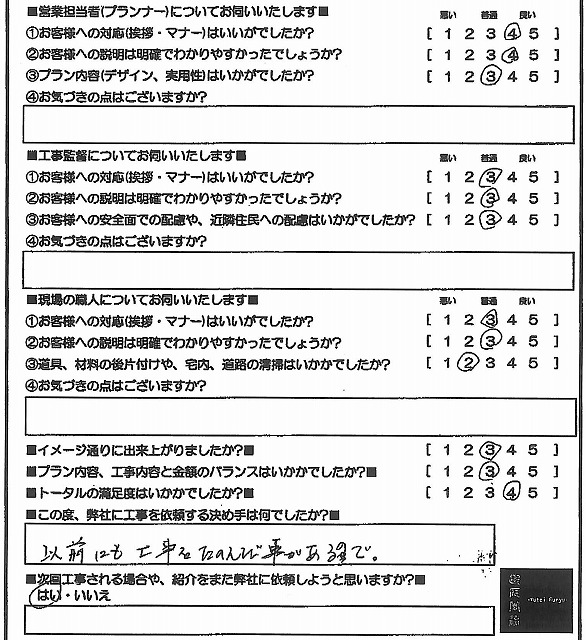 ■営業担当者(プランナー)についてお伺いいたします■ 悪い 普通 良い
①お客様への対応(挨拶・マナー)はいいがでしたか? [ 1 2 3 4 5 ]
②お客様への説明は明確でわかりやすかったでしょうか? [ 1 2 3 4 5 ]
③プラン内容(デザイン、実用性)はいかがでしたか? [ 1 2 3 4 5 ]
④お気づきの点はございますか?
■工事監督についてお伺いいたします■ 悪い 普通 良い
①お客様への対応(挨拶・マナー)はいいがでしたか? [ 1 2 3 4 5 ]
②お客様への説明は明確でわかりやすかったでしょうか? [ 1 2 3 4 5 ]
③お客様への安全面での配慮や、近隣住民への配慮はいかがでしたか? [ 1 2 3 4 5 ]
④お気づきの点はございますか?
■現場の職人についてお伺いいたします■ 悪い 普通 良い
①お客様への対応(挨拶・マナー)はいいがでしたか? [ 1 2 3 4 5 ]
②お客様への説明は明確でわかりやすかったでしょうか? [ 1 2 3 4 5 ]
③道具、材料の後片付けや、宅内、道路の清掃はいかかでしたか? [ 1 2 3 4 5 ]
④お気づきの点はございますか?
■イメージ通りに出来上がりましたか?■ [ 1 2 3 4 5 ]
■プラン内容、工事内容と金額のバランスはいかかでしたか?■ [ 1 2 3 4 5 ]
■トータルの満足度はいかかでしたか?■ [ 1 2 3 4 5 ]
■この度、弊社に工事を依頼する決め手は何でしたか?■
以前にも工事をたのんだ事がある で。
■次回工事される場合や、紹介をまた弊社に依頼しようと思いますか?■
はい・いいえ
遊庭風流
-Yutei Furyu-